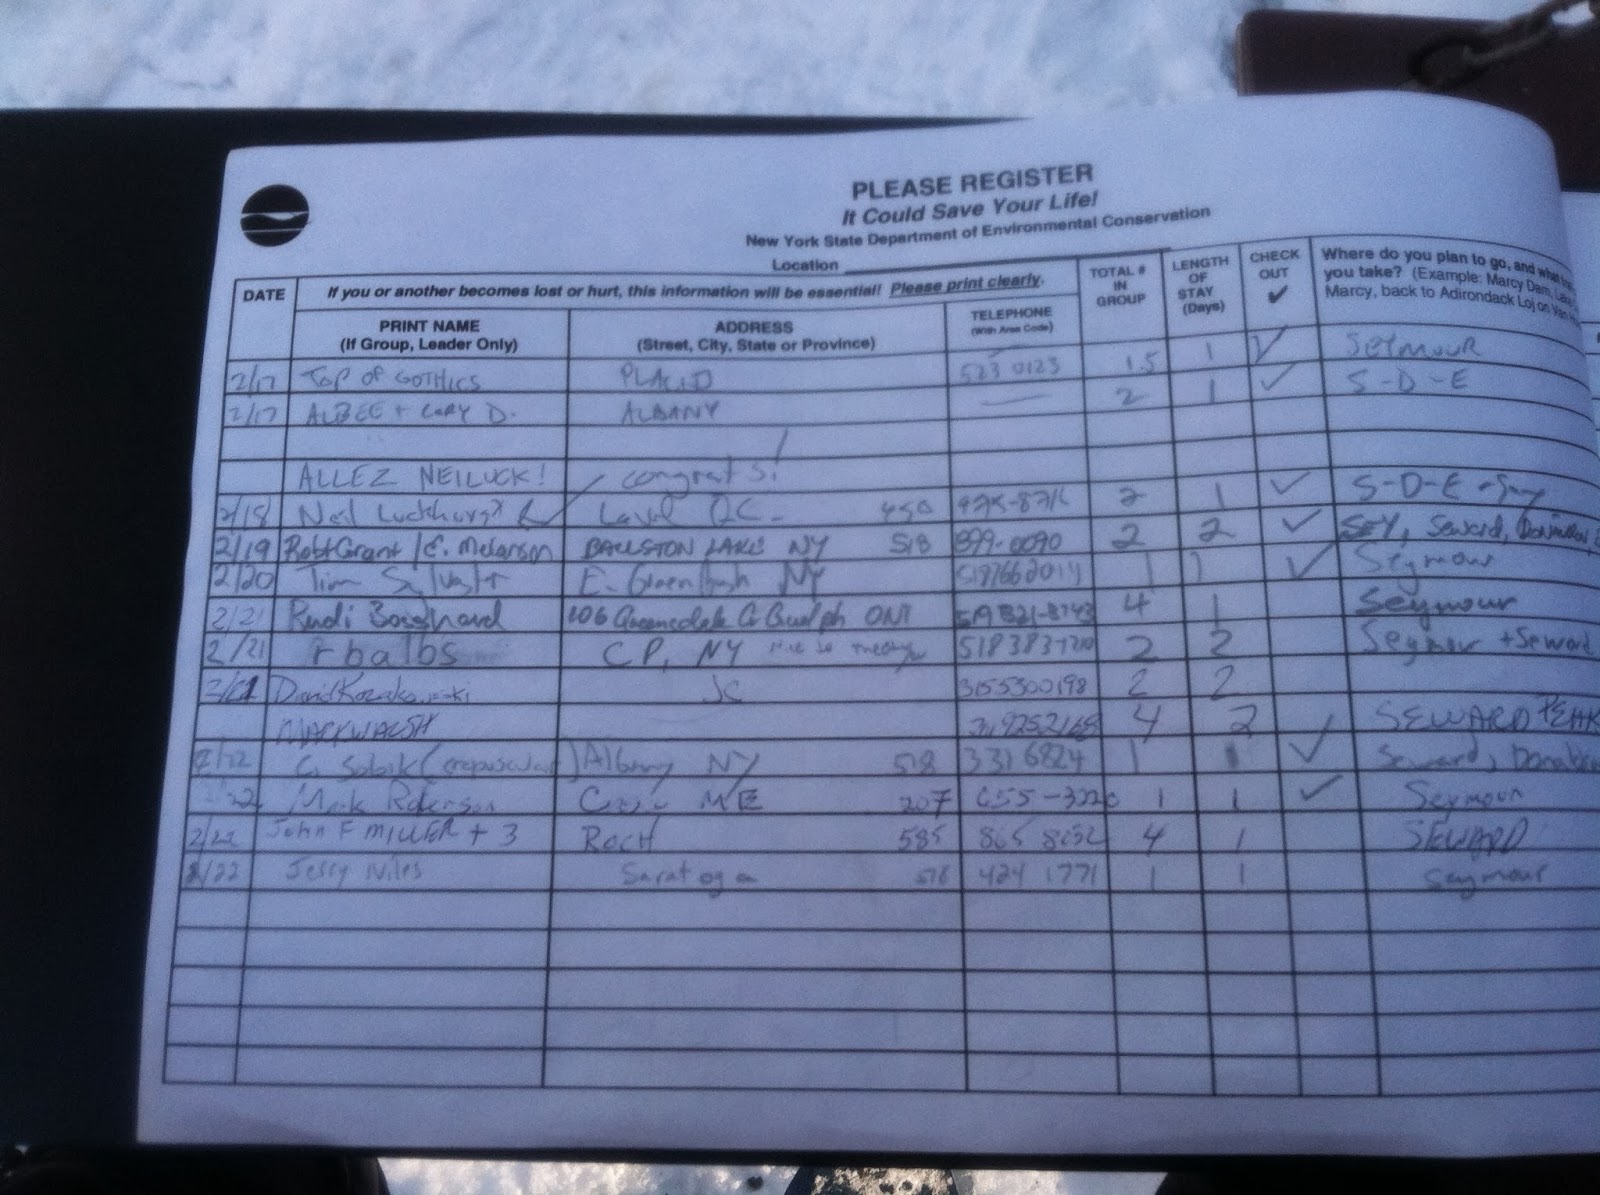 PLEASE REGISTER
It Could Save Your Life!
New York State Department of Environmental Conservation
Location
DATE
If you or another becomes lost or hurt, this information will be essential! Please print clearly.
PRINT NAME
(If Group, Leader Only)
ADDRESS
(Street, City, State or Province)
TELEPHONE
(With Area Code)
TOTAL # IN GROUP
LENGTH OF STAY (Days)
CHECK OUT ✔
Where do you plan to go, and what
you take? (Example: Marcy Dam,
Marcy, back to Adirondack Loj on Van
2/17 TOP OF GOTHICS PLACID 523 0123 1.5 1 ✓ SEYMOUR
2/17 ALBEE + CORY D. ALBANY — 2 1 ✓ S-D-E
ALLEZ NEILUCK! congrats!
2/18 Neil Luckhurst Laval QC- 450 2 1 ✓ S-D-E
2/19 Robt Grant / E. Melanson BALLSTON LAKE NY 518 899-0090 2 2 ✓ SEY, Seward,
2/20 Tim E. Greenbush NY 5187662014 1 1 ✓ Seymour
2/21 Rudi 106 Guelph ONT 4 1 Seymour
2/21 rbalbs CP, NY 2 2 Seymour + Seward
David 3155300198 2 2
MARK WALSH 4 2 SEWARD PEAK
2/22 C. Sobik (crepuscular) Albany NY 518 331 6824 1 1 ✓ Seward,
22 Mark ME 207 1 1 ✓ Seymour
2/22 John F MILLER + 3 Roch 585 865 4 1 SEWARD
2/22 Jerry Niles Saratoga 518 424 1771 1 1 Seymour